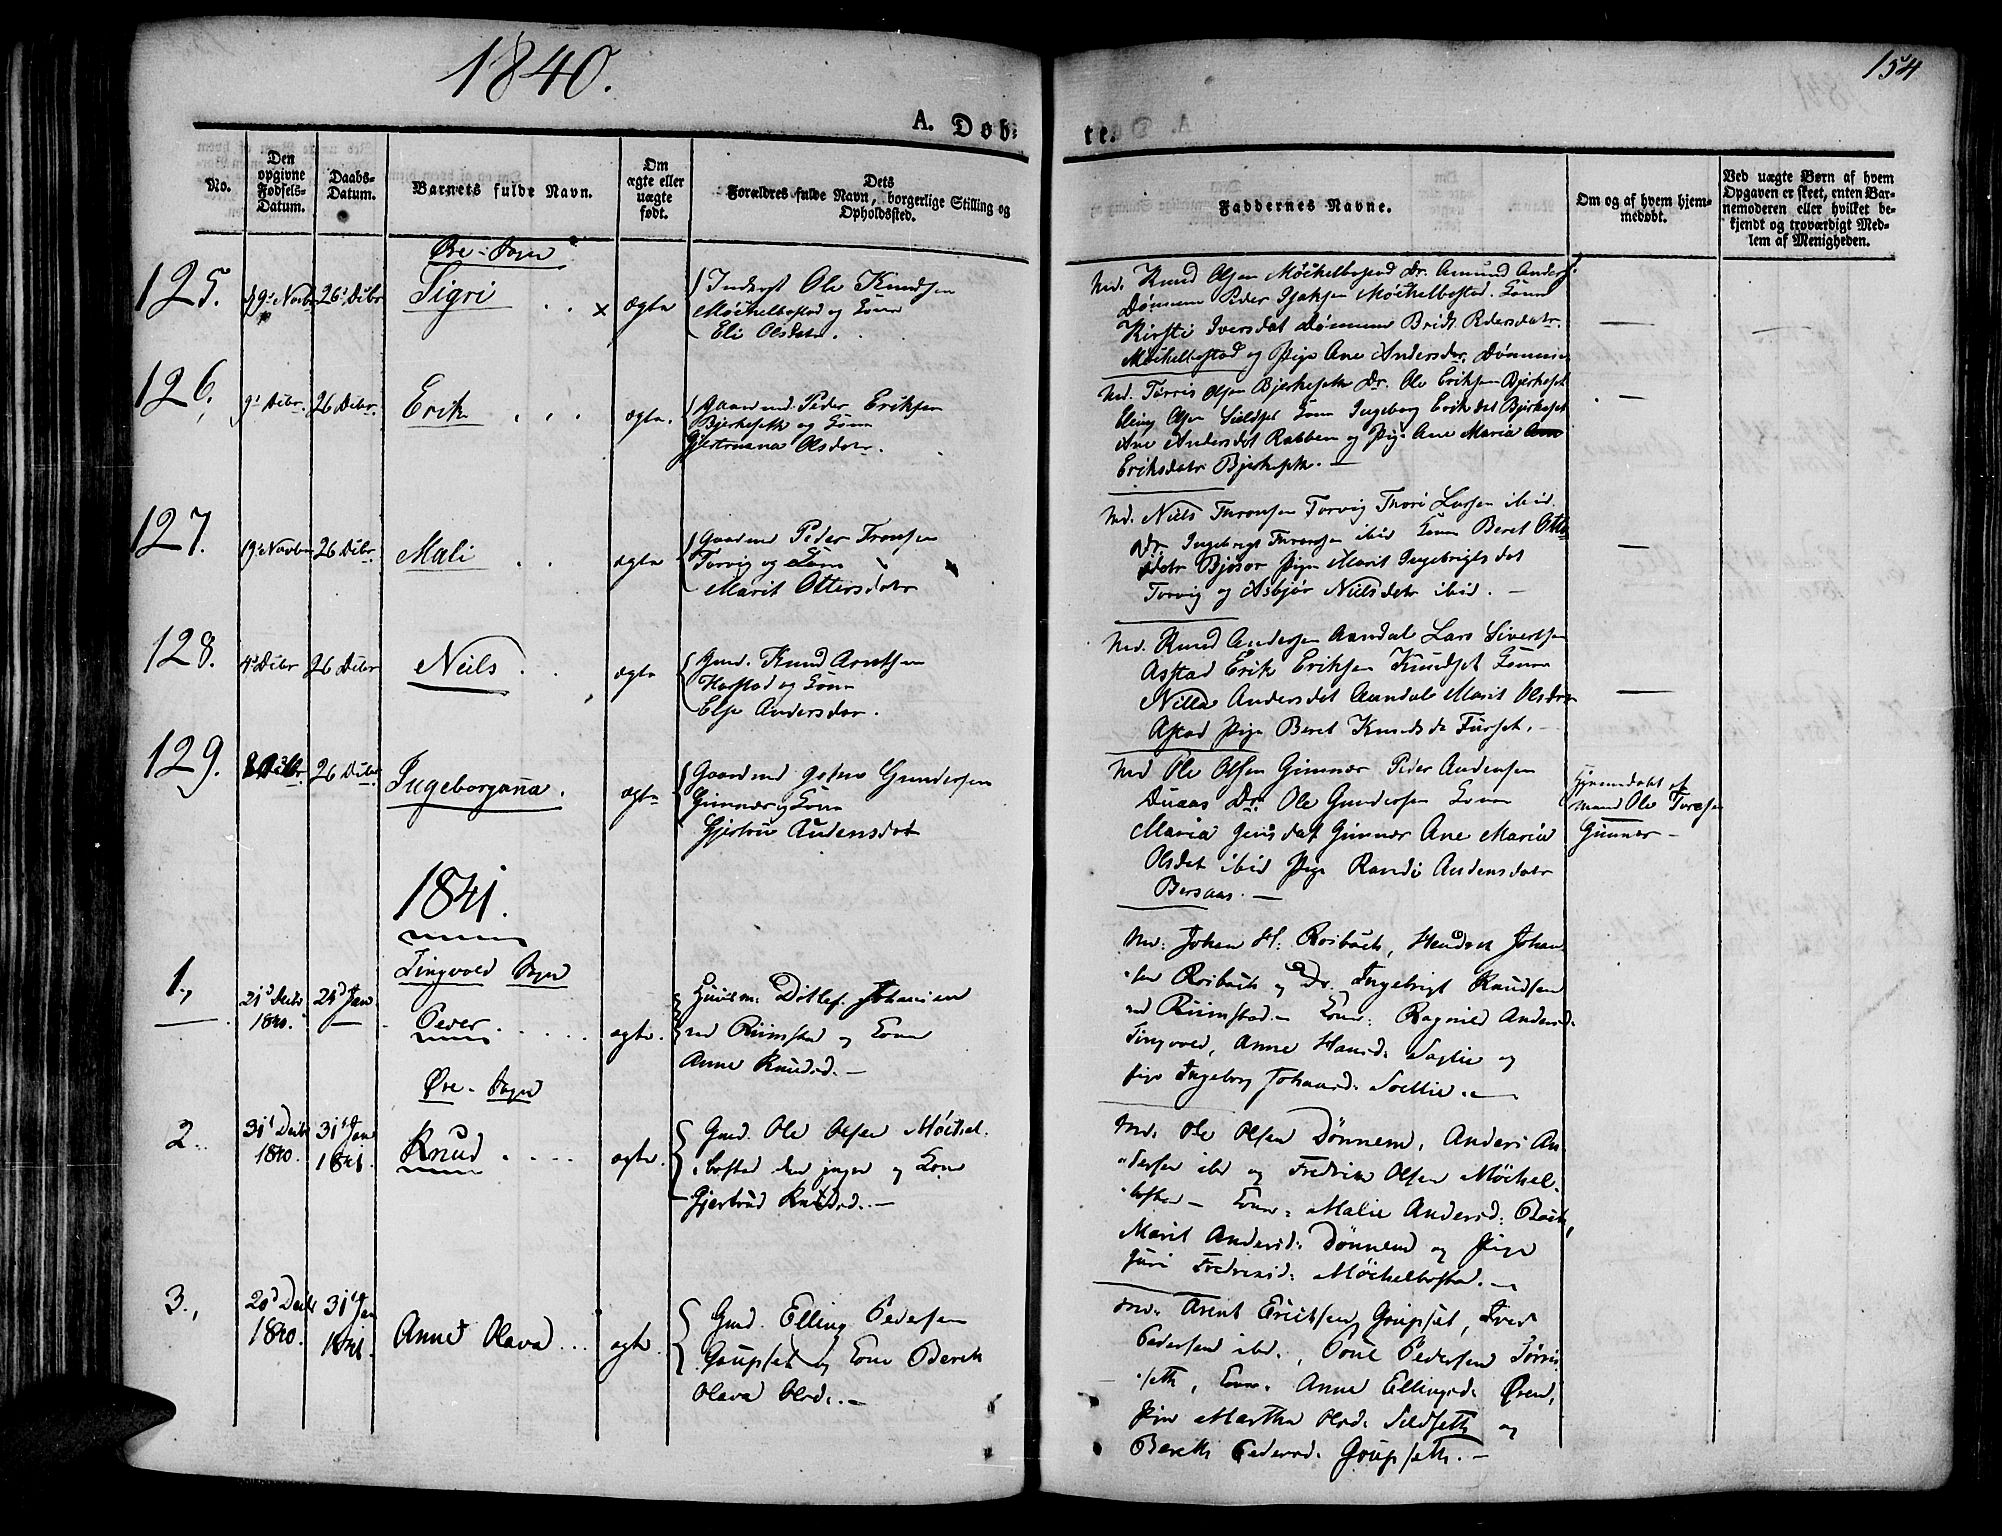 1840.
154
A. Døb-
te.
No.
Den
opgivne
Fødsels-
Datum.
Daabs-
Datum.
Barnets fulde Navn.
Om
ægte eller
uægte
født.
Dets
Forældres fulde Navn, borgerlige Stilling og
Opholdssted.
Faddernes Navne.
Om og af hvem hjem-
medøbt.
Ved uægte Børn af hvem
Opgaven er skeet, enten Bar-
nemoderen eller hvilket be-
kjendt og troværdigt Med-
lem af Menigheden.
Øre-Sogn
125.
26' Debr
Sigri
ægte
Ole Knudsen
Møckelbostad og Kone
Eli Olsdatr.
Md. Knud Olsen Møckelbostad Dr. Amund Anders.
Dønnem Peder Isaksen Møckelbostad. Kone
Kirsti Iversdat Dønnem Brit Pedersdatr.
Møckelbostad og Pige Ane Andersdr. Dønnem
—
126.
9' Debr.
26 Debr.
Erik
ægte.
Gaardmd. Peder Eriksen
Bjerkeseth og Kone
Gjertruana Olsdatr.
Md. Tørris Olsen Bjerkeseth Dr. Ole Eriksen Bjerkeset
Eling Olsen Sieldset Kone Ingeborg Eriksdat Bjerkeset
Ane Andersdat Rabben og Pige Ane Maria
Eriksdatr Bjerkeseth. —
—
127.
19' Novbr
26 Debr
Mali
ægte
Gaardmd Peder Tronsen
Torvig og Kone
Marit Ottersdatr
Md. Niels Thronsen Torvig Thore Larsen ibid
Dr. Ingebrigt Tronsen ibid Kone Beret Otters
datr Bjøsor Pige Marit Ingebrigtsdat
Torvig og Asbjør Nielsdatr ibid. —
—
128.
4' Debr
26 Debr
Niels
ægte
Gmd. Knud Arntsen
Karstad og Kone
Else Andersdatr.
Md. Knud Andersen Aandal Lars Sivertsen
Aspstad Erik Eriksen Knudset Kone
Nilla Andersdat Aandal Marit Olsdr
Astad Pige Beret Knudsd Furset. —
—
129.
Debr
26 Debr
Ingeborgana.
ægte
Gaardmd Gunder Gundersen
Gimnæs og Kone
Gjertru Audensdat
Md Ole Olsen Gimnæs Peder Andersen
Ole Gundersen Kone
Maria Gimnæs Ane Maria
Olsdat ibid Pige Randi Audensdatr
Bersaas. —
Hjemmedøbt af
Mand Ole Toresen
Gimnæs —
1841.
Tingvold Sogn
1.,
21d Decbr
1840.
24d Jan
—
Peder
ægte.
Huusm. Ditlef Johansen
ved Riimstad og Kone
Anne Knudsd. —
Md: Johan H: Rosbach, Hendrik Johan
sen Rosbach og Dr. Ingebrigt Knudsen
ved Riimstad — Kone: Ragnild Andersd:
Tingvold, Anne Hansd: Naglie og
Pige Ingeborg Johansd:
Øre-Sogn
2.
31' Decbr
1840.
31' Jan
1841.
Knud
ægte.
Gmd. Ole Olsen Møckel-
bostad den yngre og Kone
Gjertrud Knudsd. —
Md: Ole Olsen Dønnem, Anders An-
dersen ibd og Fredrik Olsen Møckel-
bostad — Kone: Malie Andersd: Bach,
Marit Andersd: Dønnem og Pige
Guri Fredriksd: Møckelbostad. —
3.,
20d Decbr
1840.
31' Jan
1841.
Anne Olava
ægte.
Gmd. Elling Pedersen
Goupset og Kone Bereth
Olava Olsd. —
Md: Arent Ericksen Goupset, Iver
Pedersen ibd., Poul Pedersen Tørris-
seth, Kone: Anne Ellingsd: Øren,
Pige Martha Olsd: Sieldseth og
Bereth Pedersd: Goupseth. —